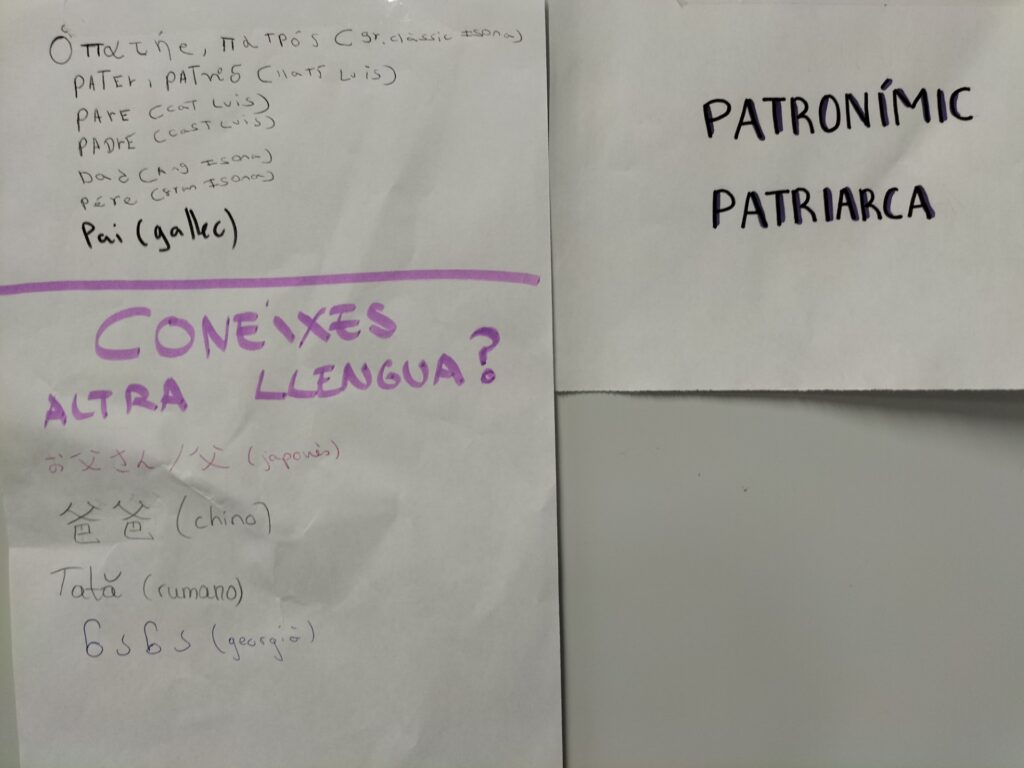 Ὁ πατήρ, πατρός (gr. clàssic Isona)
PATEr, PATrES (llatí Luis)
PArE (cat Luis)
PADrE (cast Luis)
Dad (Ang Isona)
Père (frn Isona)
Pai (gallec)
CONEIXES
ALTRA LLENGUA?
お父さん / 父 (japonès)
爸爸 (chino)
Tată (rumano)
მამა (georgià)
PATRONÍMIC
PATRIARCA